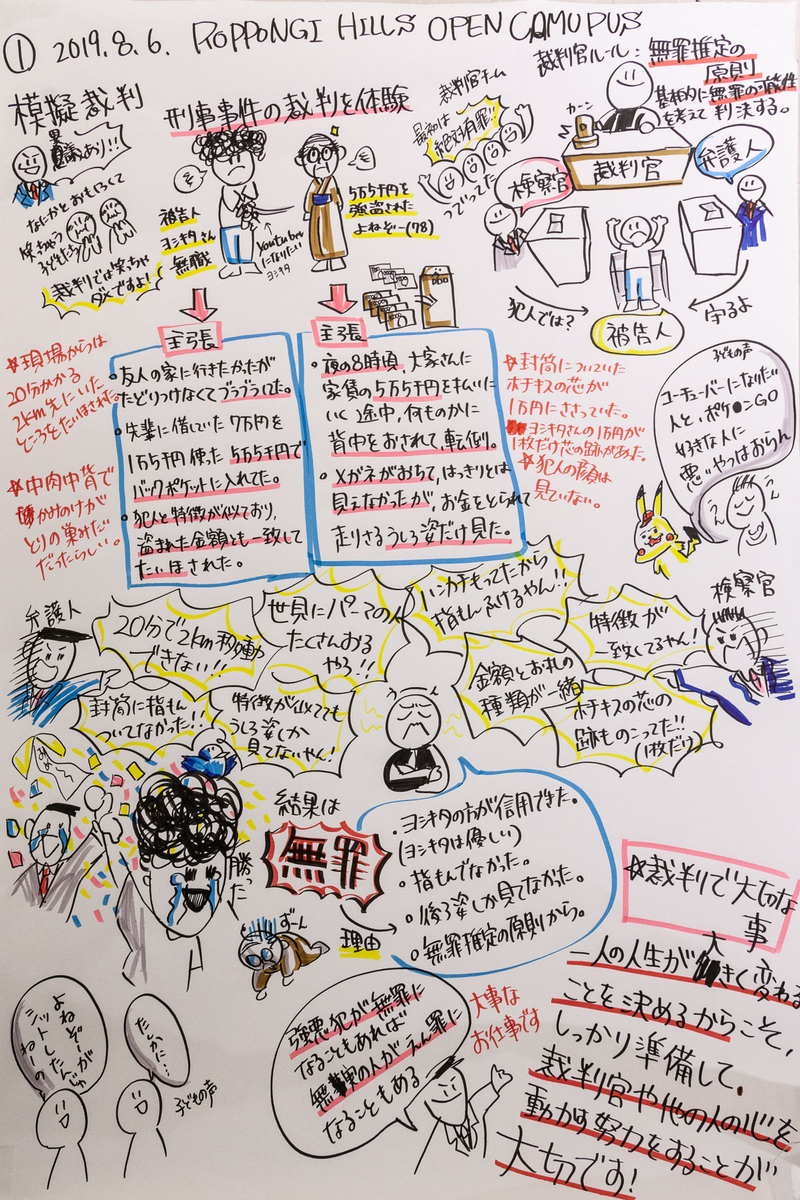 ① 2019.8.6. ROPPONGI HILLS OPEN CAMUPUS
模擬裁判
刑事事件の裁判を体験
異議あり!!
なにかとおもしろくて
笑っちゃう
子どもたち
裁判では笑っちゃ
ダメですよ!
被告人
ヨシキタさん
無職
Youtuberに
なりたい
ヨシキタ
5万5千円を
強盗された
よねぞー(78)
裁判官チーム
最初は
絶対有罪!!
っていってた
裁判官ルール:無罪推定の
原則
基本的に無罪の可能性
を考えて判決する。
カーン
裁判官
検察官
弁護人
犯人では?
守るよ
被告人
主張
・友人の家に行きたかったが
たどりつけなくてブラブラしてた。
・先輩に借りていた7万円を
1万5千円使った5万5千円で
バックポケットに入れてた。
・犯人と特徴が似ており、
盗まれた金額とも一致して
たいほされた。
主張
・夜の8時頃、大家さんに
家賃の5万5千円を払いに
いく途中、何ものかに
背中をおされて、転倒。
・メガネがおちて、はっきりとは
見えなかったが、お金をとられて
走りさるうしろ姿だけ見た。
☆現場からは
20分かかる
2km先にいた
ところをたいほされた。
☆中肉中背で
かみのけが
とりの巣みたい
だったらしい。
☆封筒についていた
ホチキスの芯が
1万円にささっていた。
ヨシキタさんの1万円が
1枚だけ芯の跡があった。
☆犯人の顔は
見ていない。
子どもの声
ユーチューバーになりたい
人と、ポケ●ンGO
好きな人に
悪いやつはおらん
弁護人
20分で2km移動
できない!!
世界にパーマの人
たくさんおる
やろ!!
ハンカチもってたから
指もんふけるやん!!
特徴が
一致してるやん!
検察官
封筒に指もん
ついてなかった!!
特徴が似てても
うしろ姿しか
見てないやん!
金額とお札の
種類が一緒
ホチキスの芯の
跡ものこってた!!
(1枚だけ)
勝った
結果は
無罪
理由
ずーん
・ヨシキタの方が信用できた。
(ヨシキタは優しい)
・指もんでなかった。
・後ろ姿しか見てなかった。
・無罪推定の原則から。
☆裁判で大切な
事
一人の人生が大きく変わる
ことを決めるからこそ、
しっかり準備して、
裁判官や他の人の心を
動かす努力をすることが
大切です!
よねぞーが
シットしたんじゃ
ねーの
たしかに…
子どもの声
強悪犯が無罪に
なることもあれば
無実の人がえん罪に
なることもある
大事な
お仕事です